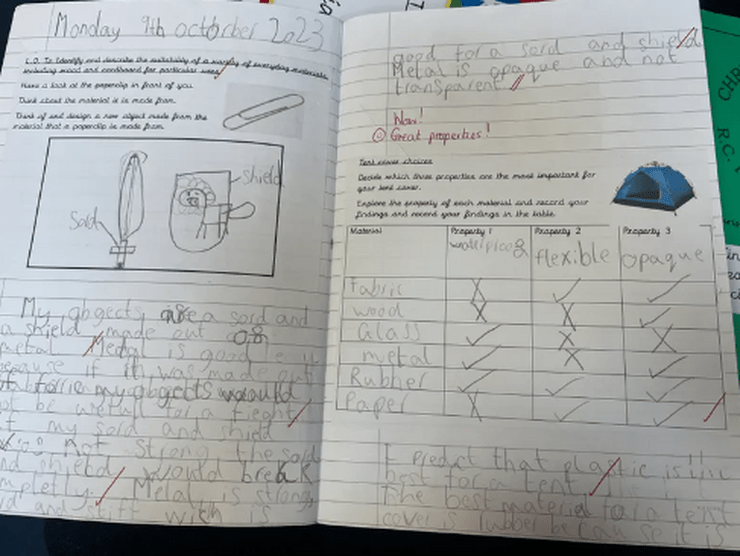 Monday 9th octorber 2023
L.O. To Identify and describe the suitability of a variety of everyday materials,
including wood and cardboard for particular uses
Have a look at the paperclip in front of you.
Think about the material it is made from.
Think of and design a new object made from the
material that a paperclip is made from.
Shield
Sord
My obgects are a sord and
a shield made out of
metal Medal is good
because if it was made out
of fabric my obgects would
not be usefull for a fieght
if my sord and shield
was not strong the sord
and shield would break
completly. Metal is strong
and stiff wich is
good for a sord and shield
Metal is opaque and not
transparent
Wow!
Great properties!
Tent cover choices
Decide which three properties are the most important for
your tent cover.
Explore the property of each material and record your
findings and record your findings in the table.
Material Property 1 Property 2 Property 3
flexible opaque
fabric X ✓ ✓
wood X X ✓
Glass ✓ X X
metal ✓ X ✓
Rubber ✓ ✓ ✓
Paper X ✓ ✓
I predict that plastic is the
best for a tent
The best material for a tent
cover is rubber because it is
CHR
R.C.